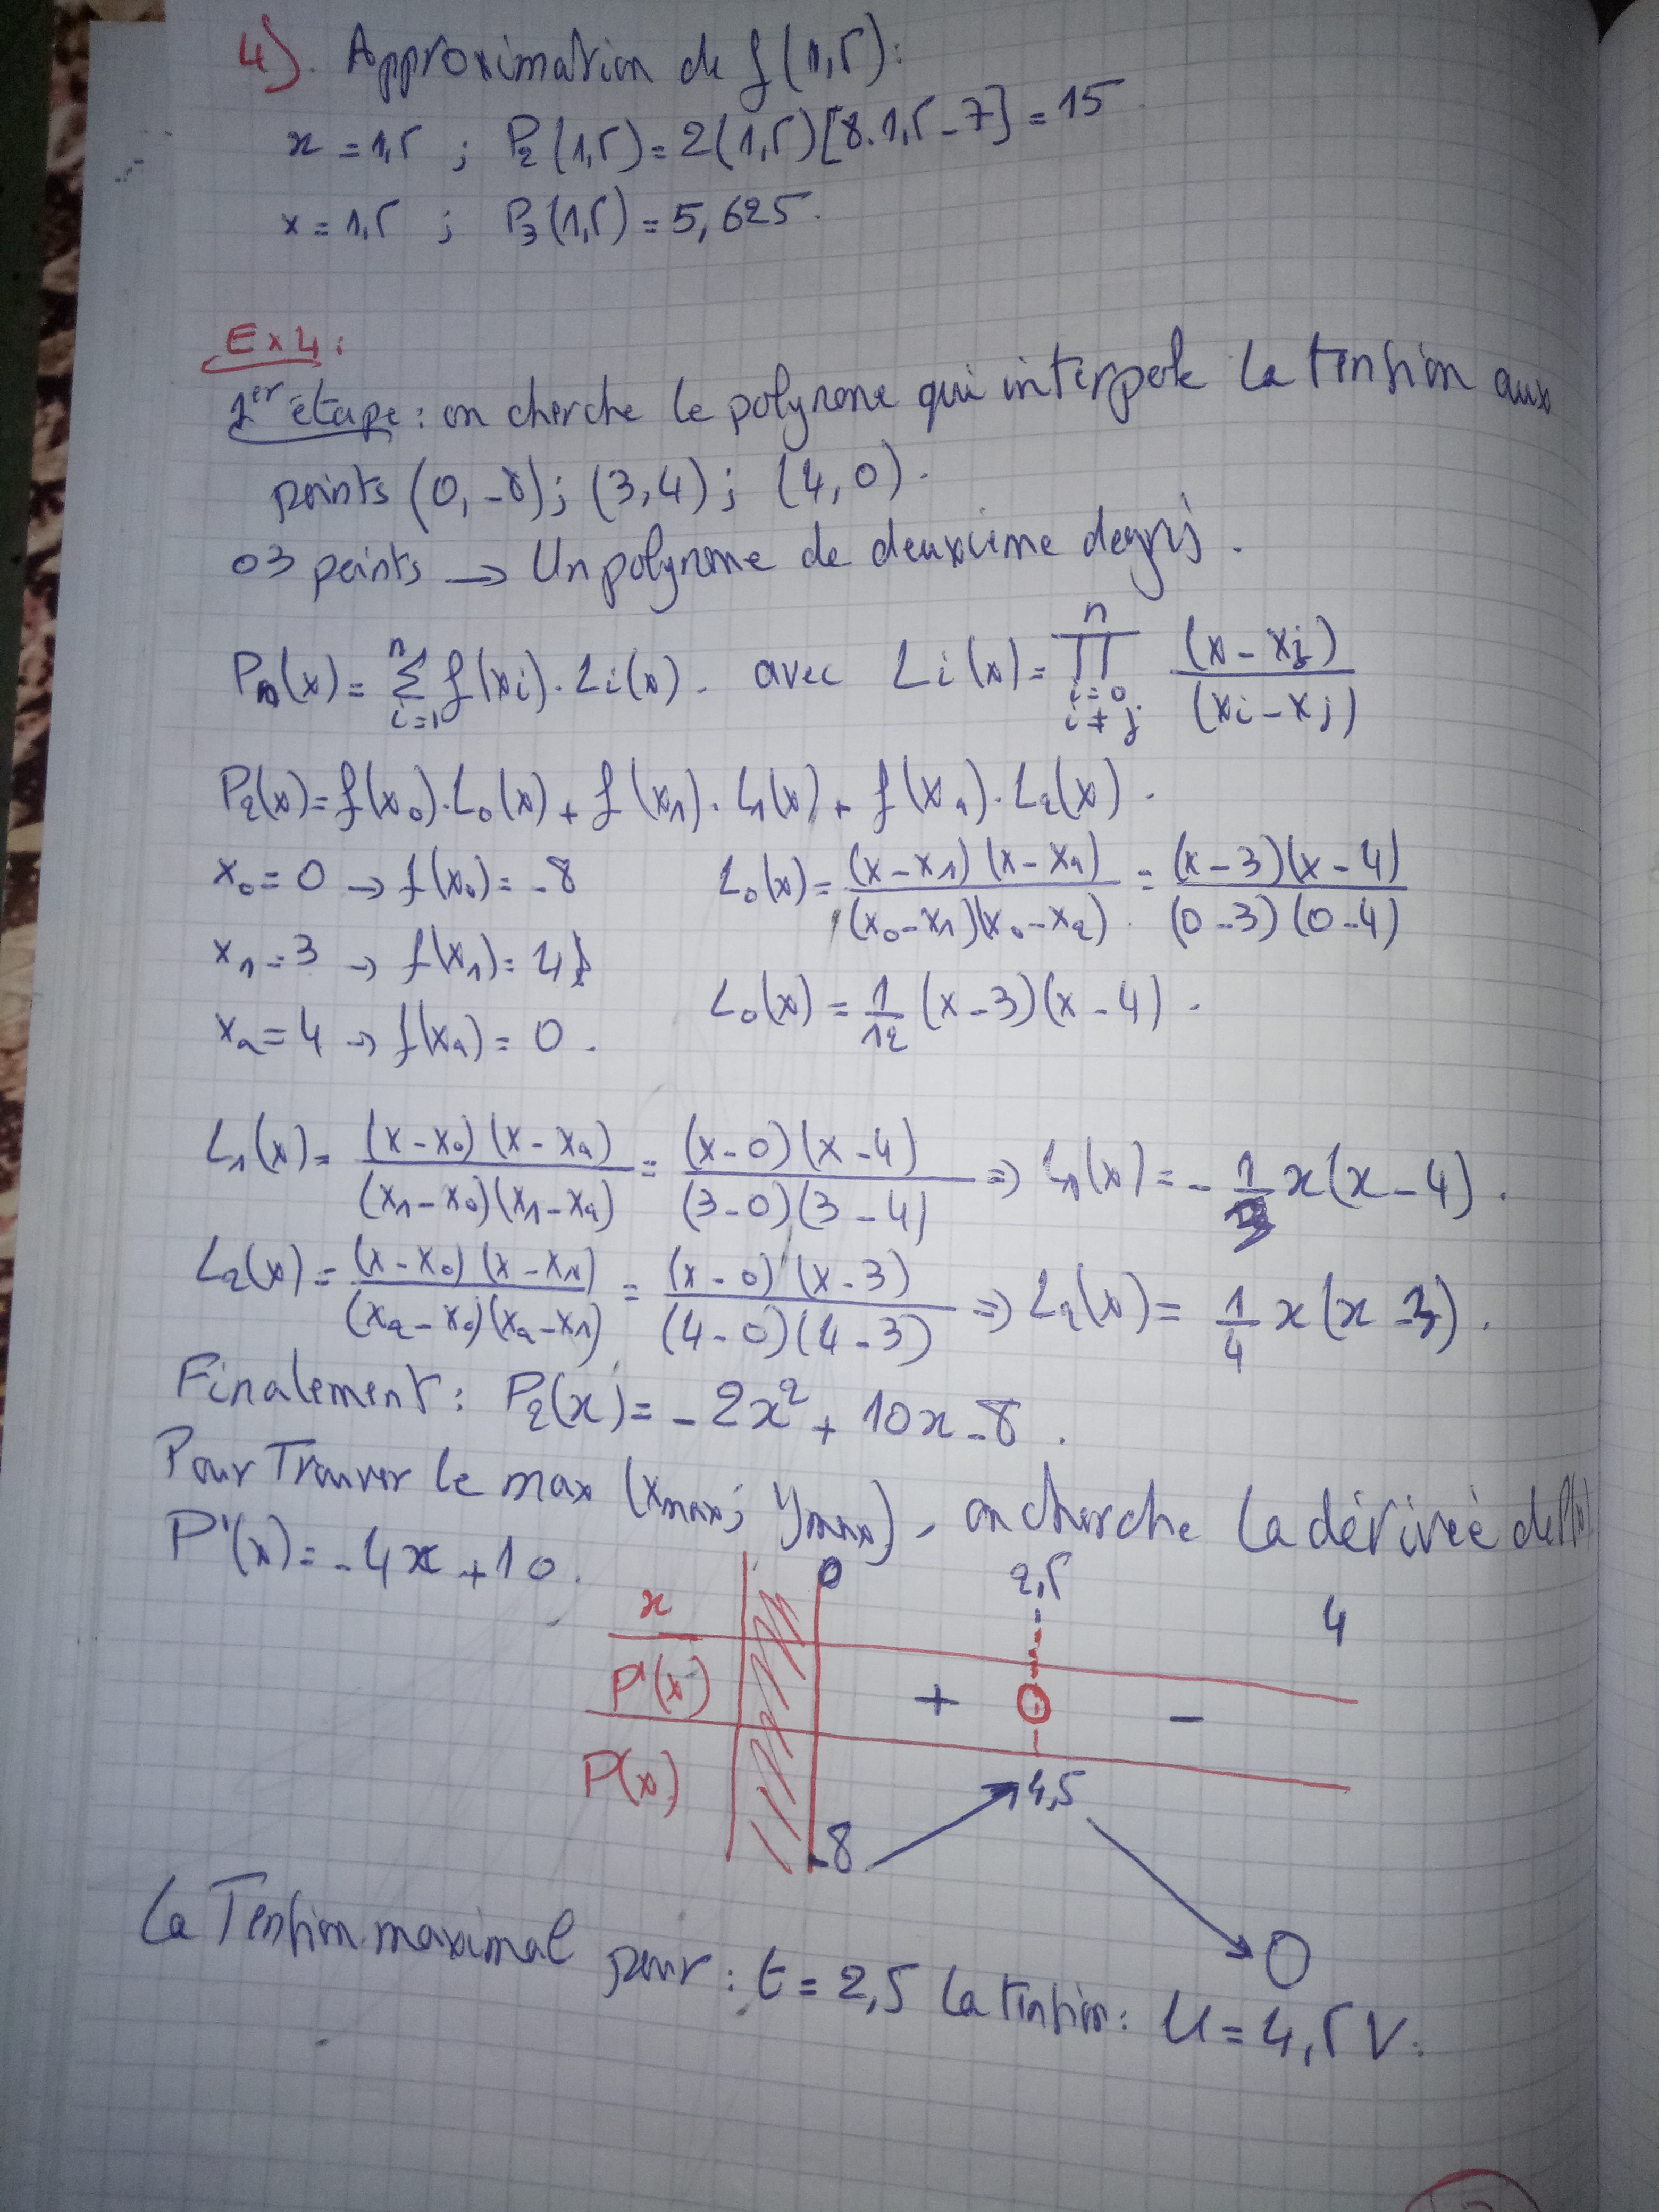 4). Approximation de f(1,5):
x = 1,5 ; P₂(1,5) = 2(1,5)[8.1,5-7] = 15
x = 1,5 ; P₃(1,5) = 5,625.
Ex4:
1er étape : on cherche le polynome qui interpole la tension aux
points (0,-8); (3,4); (4,0).
03 points → Un polynome de deuxième degrés.
Pₙ(x) = Σ_{i=1}^{n} f(xi).Li(x). avec Li(x) = ∏_{i=0, i≠j}^{n} (x-xj)/(xi-xj)
P₂(x) = f(x₀).L₀(x) + f(x₁).L₁(x) + f(x₂).L₂(x).
x₀ = 0 → f(x₀) = -8 L₀(x) = (x-x₁)(x-x₂)/(x₀-x₁)(x₀-x₂) = (x-3)(x-4)/(0-3)(0-4)
x₁ = 3 → f(x₁) = 4
x₂ = 4 → f(x₂) = 0. L₀(x) = 1/12 (x-3)(x-4).
L₁(x) = (x-x₀)(x-x₂)/(x₁-x₀)(x₁-x₂) = (x-0)(x-4)/(3-0)(3-4) ⇒ L₁(x) = -1/3 x(x-4).
L₂(x) = (x-x₀)(x-x₁)/(x₂-x₀)(x₂-x₁) = (x-0)(x-3)/(4-0)(4-3) ⇒ L₂(x) = 1/4 x(x-3).
Finalement : P₂(x) = -2x² + 10x - 8.
Pour Trouver le max (xmax; ymax), on cherche la dérivée de P(x)
P'(x) = -4x + 10.
x 0 2,5 4
P'(x) + 0 -
P(x) -8 4,5 0
La Tension maximal pour : t = 2,5 la tension : U = 4,5 V.